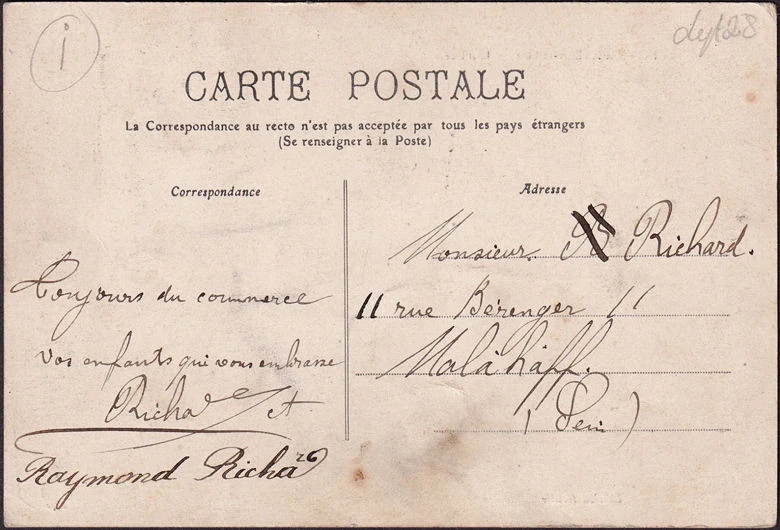 i
dept 28
CARTE POSTALE
La Correspondance au recto n'est pas acceptée par tous les pays étrangers
(Se renseigner à la Poste)
Correspondance
Adresse
Monsieur. Richard.
11 rue Bérenger 11
Malàkaff.
(Sein)
Toujours du commerce
Vos enfants qui vous embrasse
Richa et
Raymond Richa